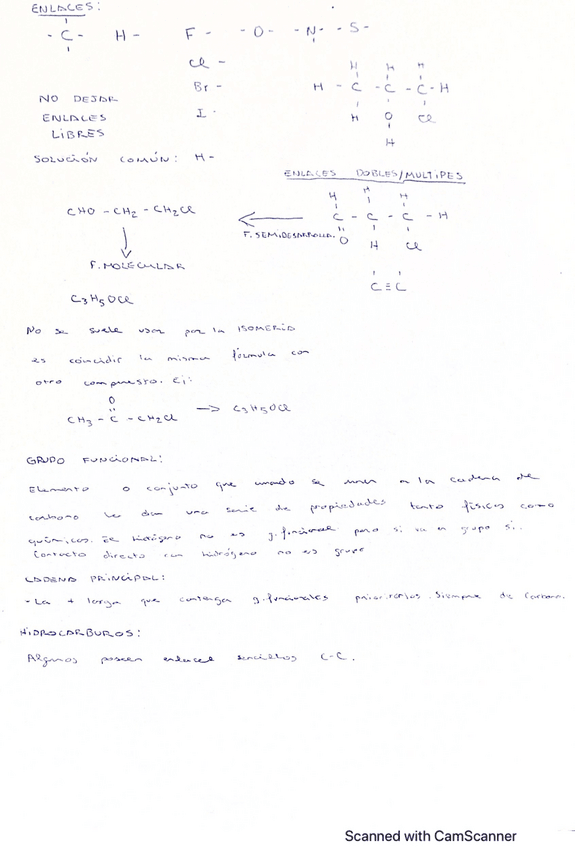 ENLACES:
- C -   H -   F -   - O -   - N -   - S -
Cl -
Br -
I -
H H H
H - C - C - C - H
H O Cl
H
NO DEJAR
ENLACES
LIBRES
SOLUCIÓN COMÚN: H -
ENLACES DOBLES/MULTIPES
H H H
C - C - C - H
O H Cl
F. SEMIDESARROLLA.
CHO - CH2 - CH2Cl
F. MOLECULAR
C3H5OCl
C ≡ C
No se suele usar por la ISOMERIA
es coincidir la misma fórmula con
otro compuesto. Ej:
O
CH3 - C - CH2Cl → C3H5OCl
GRUPO FUNCIONAL:
Elemento o conjunto que cuando se unen a la cadena de
carbono le dan una serie de propiedades tanto físicas como
químicas. El hidrógeno no es g. funcional pero si va en grupo si..
Contacto directo con hidrógeno no es grupo
CADENA PRINCIPAL:
- La + larga que contenga g. funcionales prioritarios. Siempre de Carbono.
HIDROCARBUROS:
Algunos poseen enlaces sencillos C-C.
Scanned with CamScanner